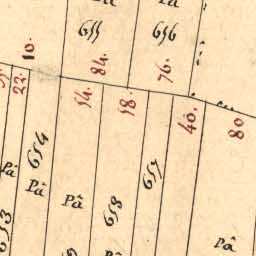 655
656
10.
84.
76.
22.
54.
58.
40.
80
654
657
658
653
Pâ
Pâ
Pâ
Pâ